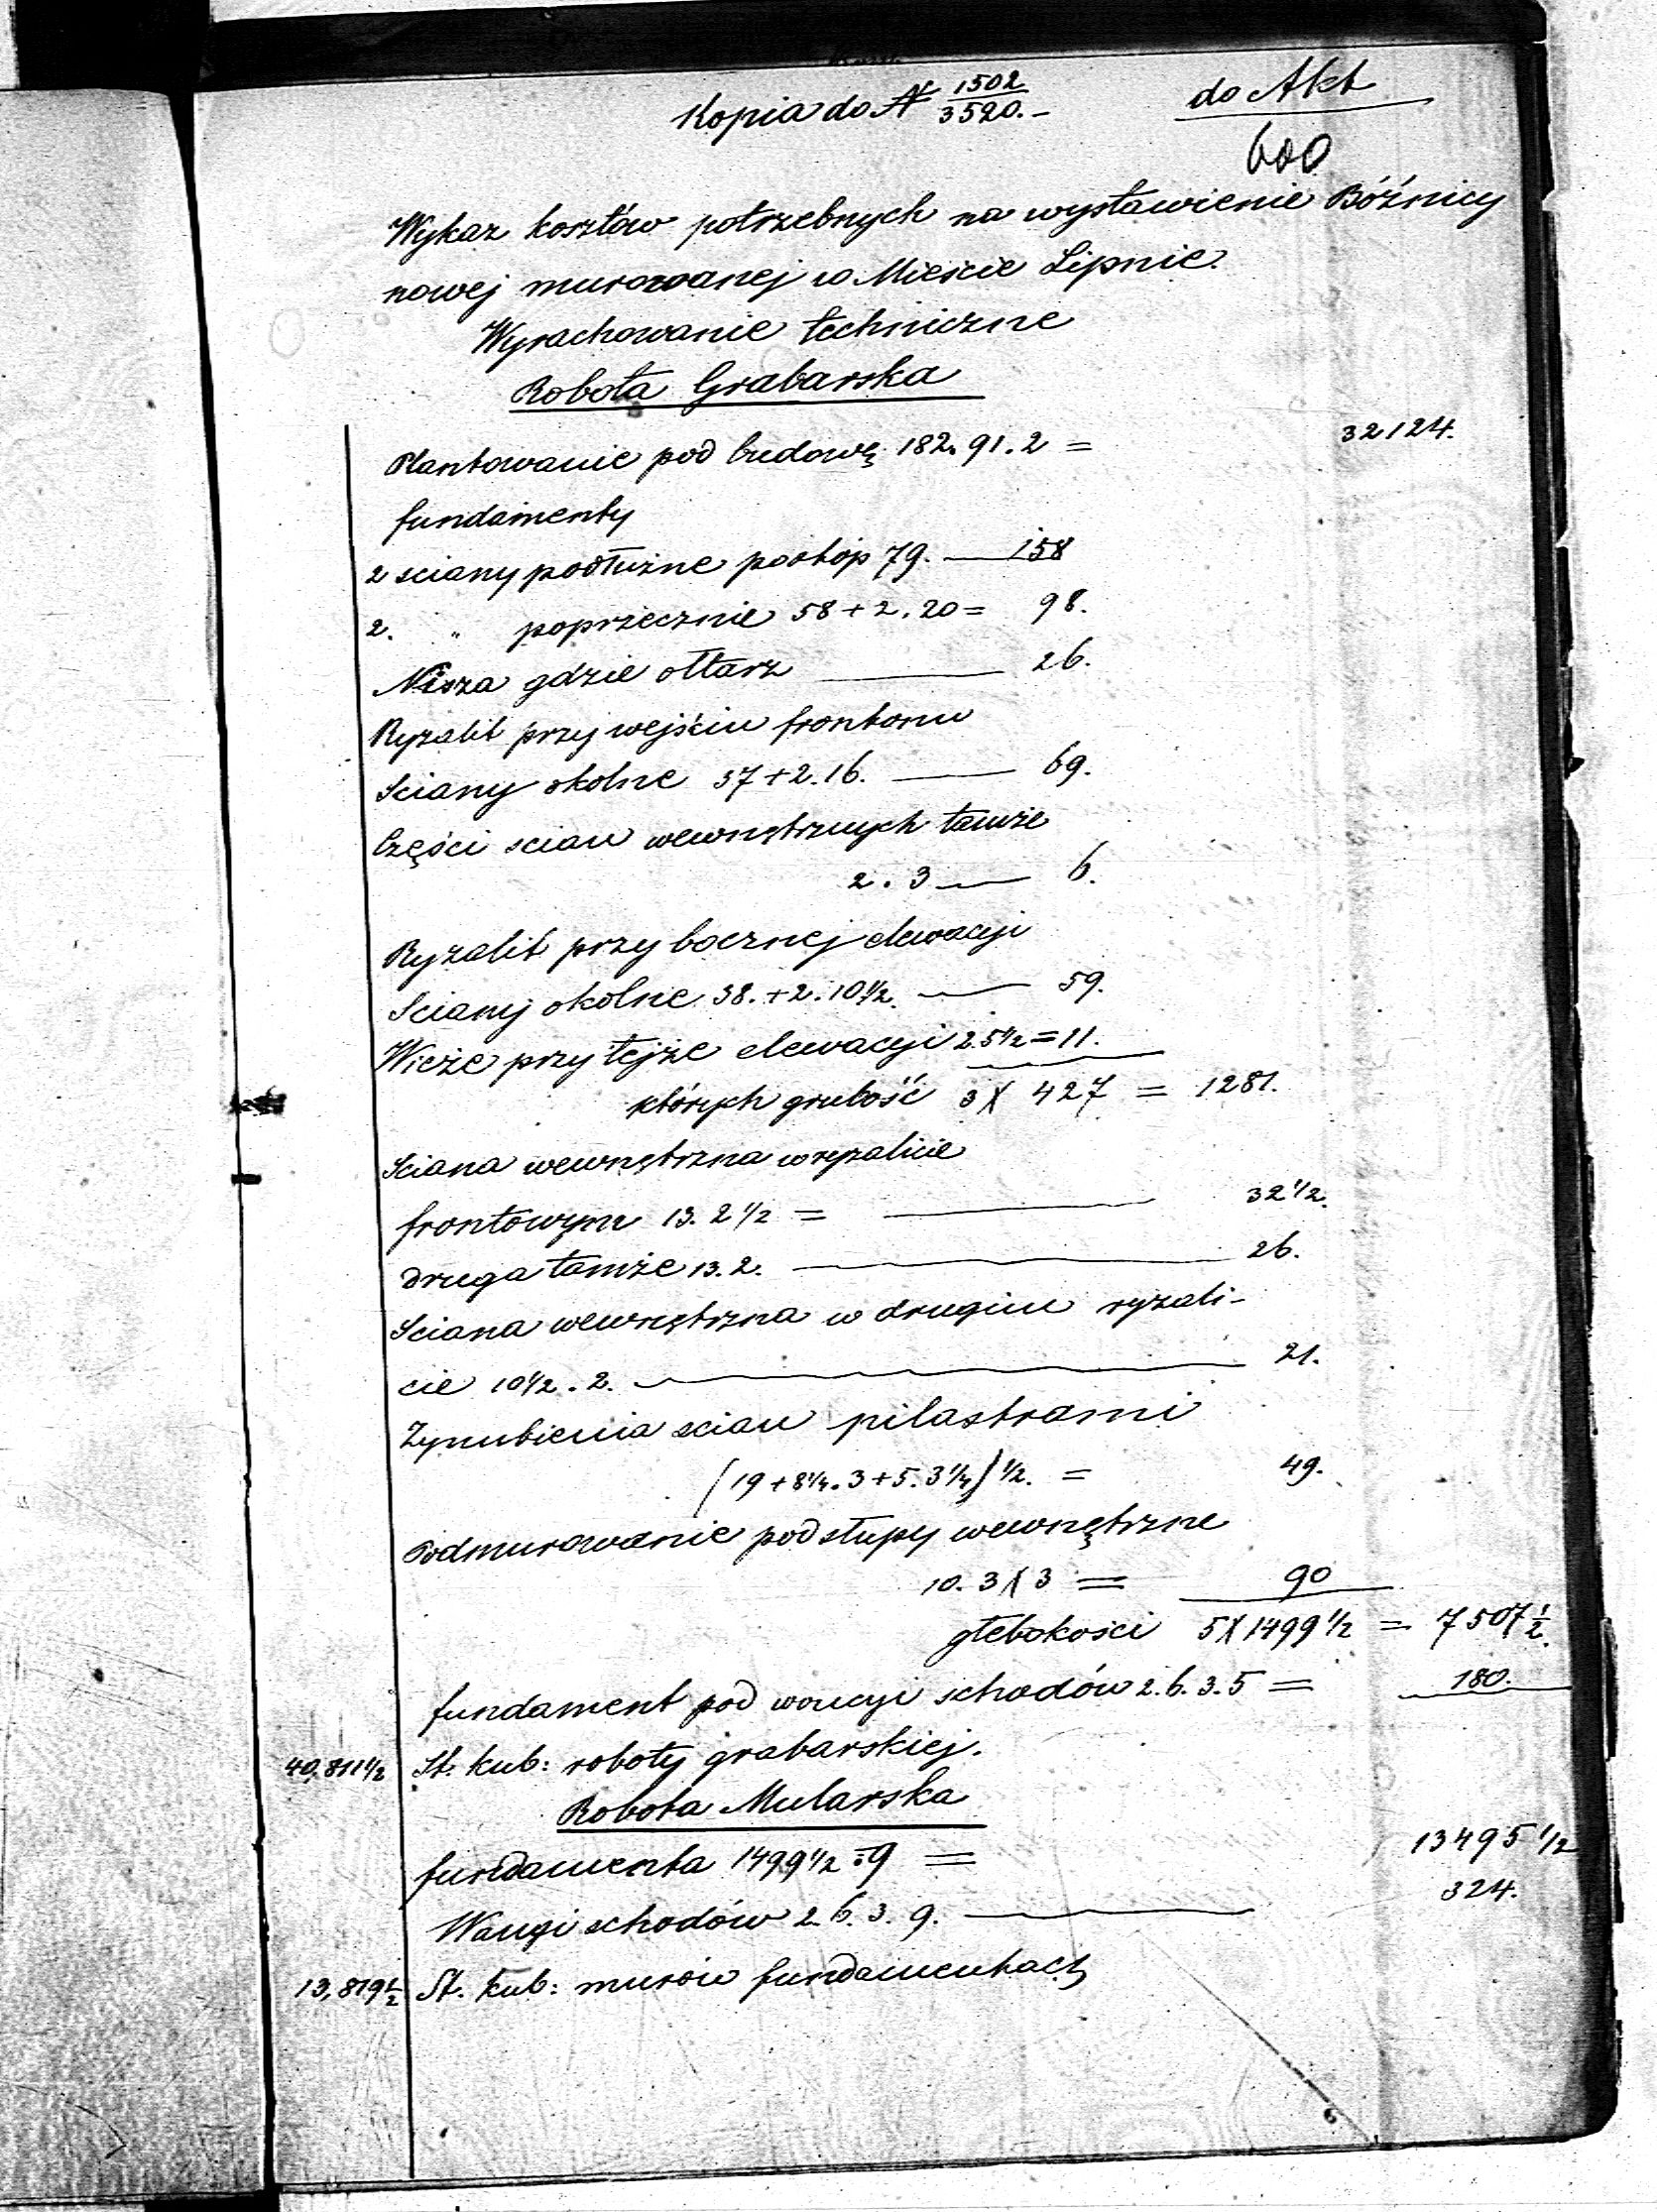 Kopia do № 1502/3520.-
do Akt
600
Wykaz kosztów potrzebnych na wystawienie Bóźnicy
nowej murowanej w Mieście Lipnie.
Wyrachowanie techniczne
Robota Grabarska
Plantowanie pod budowę 182. 91. 2 = 32124.
fundamenty
2 sciany podłużne postóp 79. — 158
2. " poprzecznie 58 + 2. 20 = 98.
Nisza gdzie ołtarz — 26.
Ryzalit przy wejściu frontonu
Sciany okolne 37 + 2. 16. — 69.
Części scian wewnętrznych tamże
2. 3 — 6.
Ryzalit przy bocznej elewacyi
Sciany okolne 38. + 2. 10 1/2. — 59.
Wieże przy tejże elewacyi 2. 5 1/2 = 11.
których grubość 3 X 427 = 1281.
Sciana wewnętrzna w ryzalicie
frontowym 13. 2 1/2 = — 32 1/2.
druga tamże 13. 2. — 26.
Sciana wewnętrzna w drugim ryzali-
cie 10 1/2. 2. — 21.
Zgrubienia scian pilastrami
(19 + 8 1/4. 3 + 5. 3 1/4) 1/2. = 49.
Podmurowanie pod słupy wewnętrzne
10. 3 X 3 = 90
głebokości 5 X 1499 1/2 = 7507 1/2.
fundament pod wangi schodów 2. 6. 3. 5 = 180.
40,811 1/2 St. kub: roboty grabarskiej.
Robota Mularska
fundamenta 1499 1/2 . 9 = 13495 1/2
Wangi schodów 2. 6. 3. 9. — 324.
13,819 1/2 St. kub: murów fundamentach